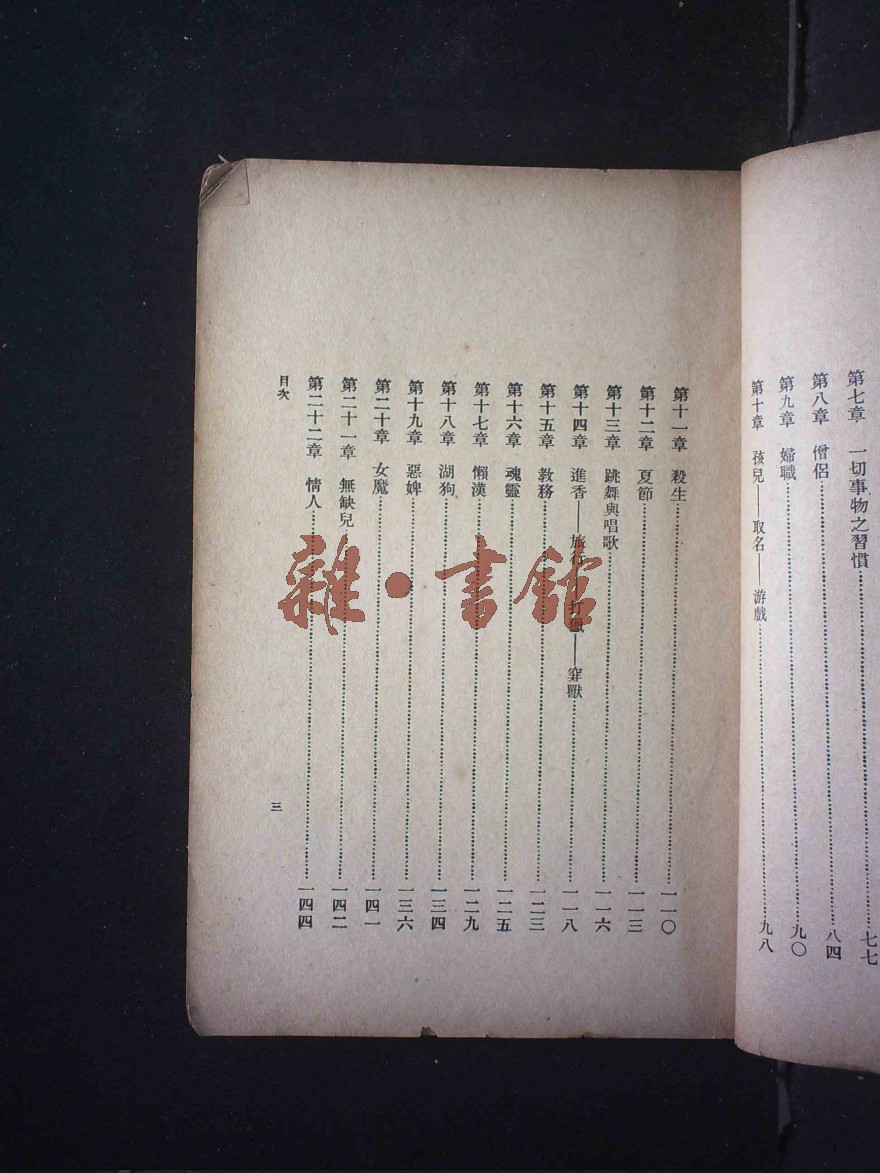 第七章　一切事物之習慣……七七
第八章　僧侶……八四
第九章　婦職……九〇
第十章　孩兒——取名——游戲……九八
第十一章　殺生……一一〇
第十二章　夏節……一一三
第十三章　跳舞與唱歌……一一六
第十四章　進香——旅行——打獵——穽獸……一一八
第十五章　教務……一二三
第十六章　魂靈……一二五
第十七章　懶漢……一二九
第十八章　湖狗……一三四
第十九章　惡婢……一三六
第二十章　女魔……一四一
第二十一章　無缺兒……一四二
第二十二章　情人……一四四
目次
三
雜·書館